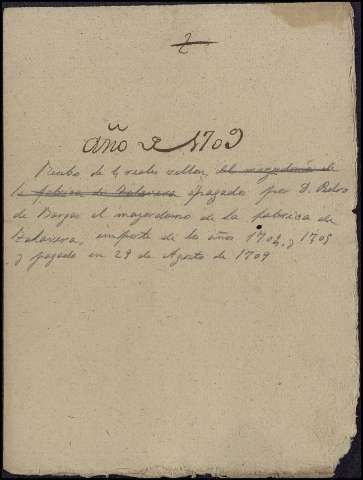 2
Año de 1709
Recibo de 6 reales vellon, al mayordomo de
la fabrica de Talavera pagados por D. Pedro
de Bargas al mayordomo de la fabrica de
Talavera, importe de los años 1704 y 1705
y pagado en 29 de Agosto de 1709